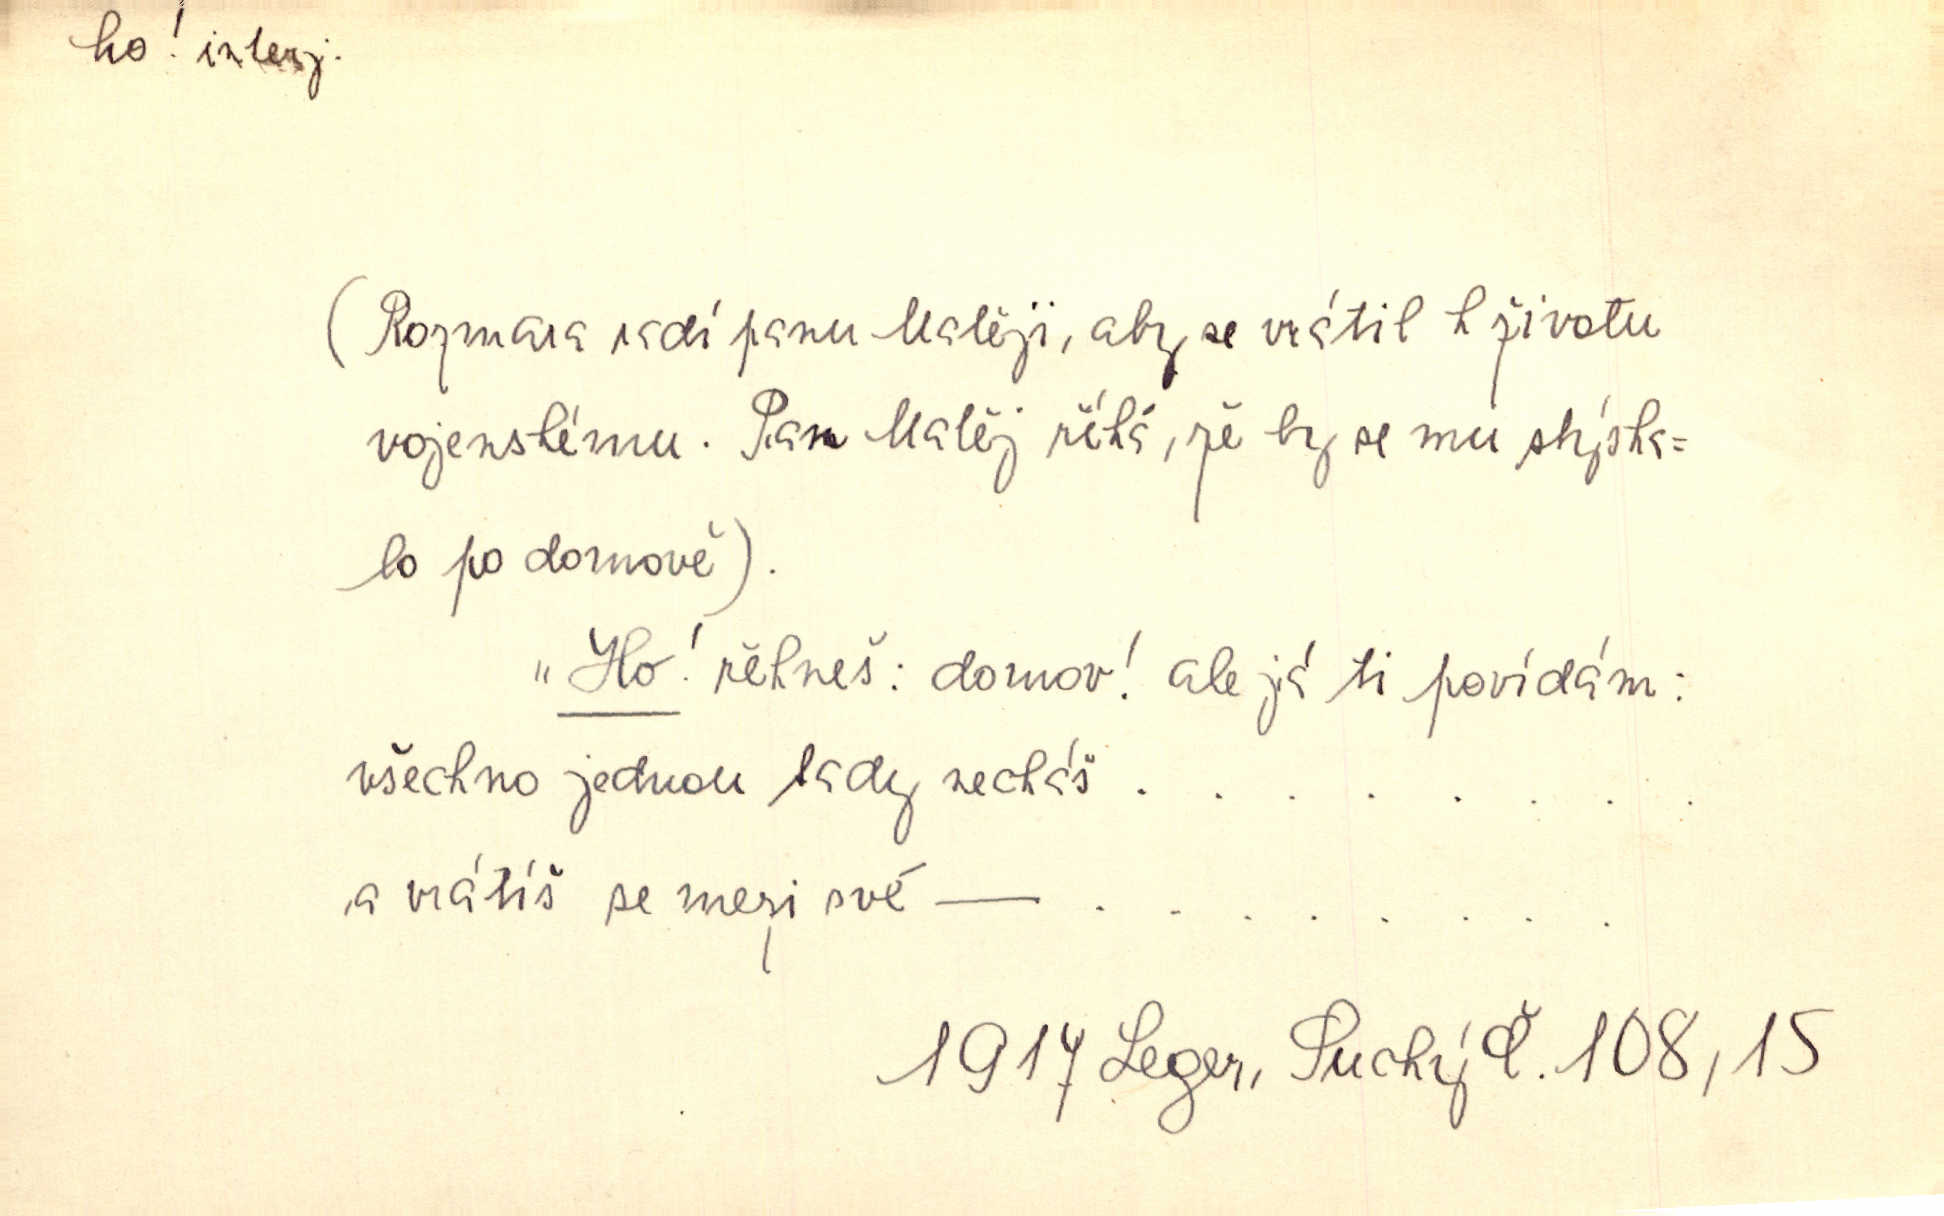 ho! interj.
(Rozmara radí panu Matěji, aby se vrátil k životu
vojenskému. Pan Matěj říká, že by se mu stýska=
lo po domově).
„Ho! řekneš: domov! ale já ti povídám:
všechno jednou tady necháš . . . . . . . .
a vrátíš se mezi své — . . . . . . . .
1917 Leger, Suchý Č. 108, 15